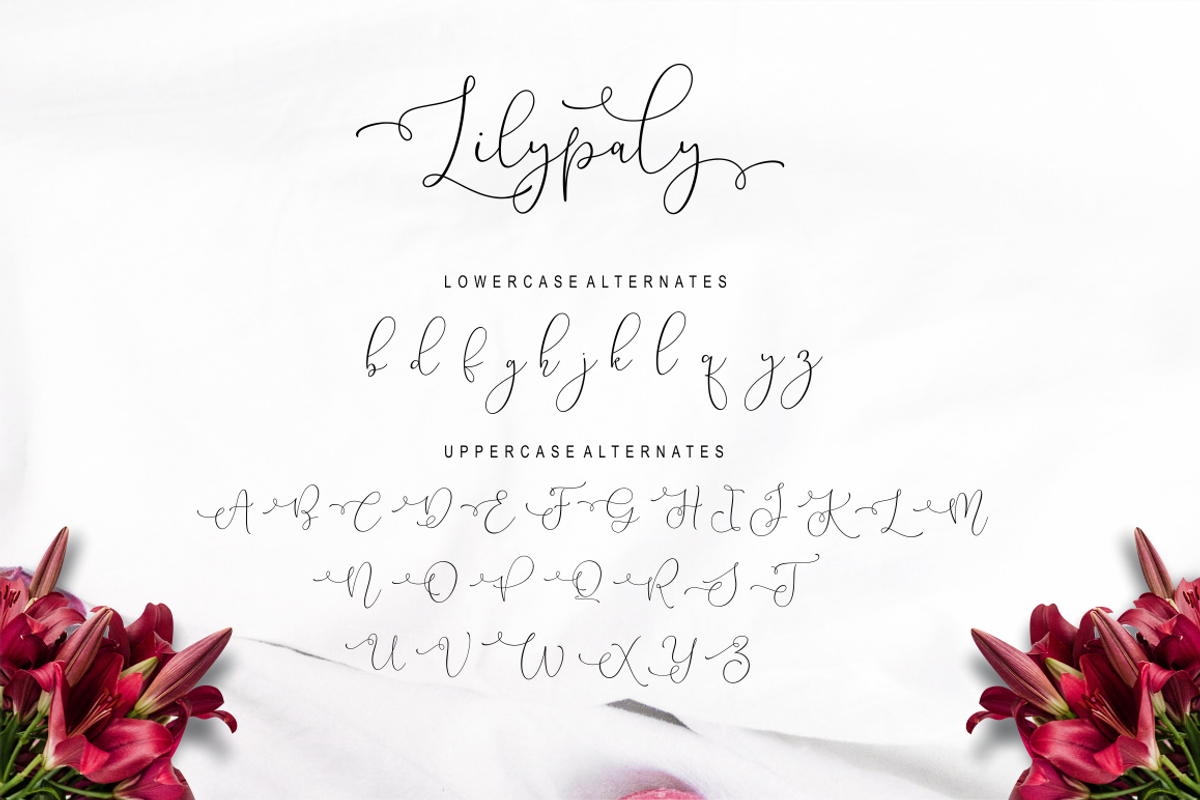 Lilypaly
LOWERCASE ALTERNATES
b d f g h j k l q y z
UPPERCASE ALTERNATES
A B C D E F G H I J K L M
N O P Q R S T
U V W X Y Z